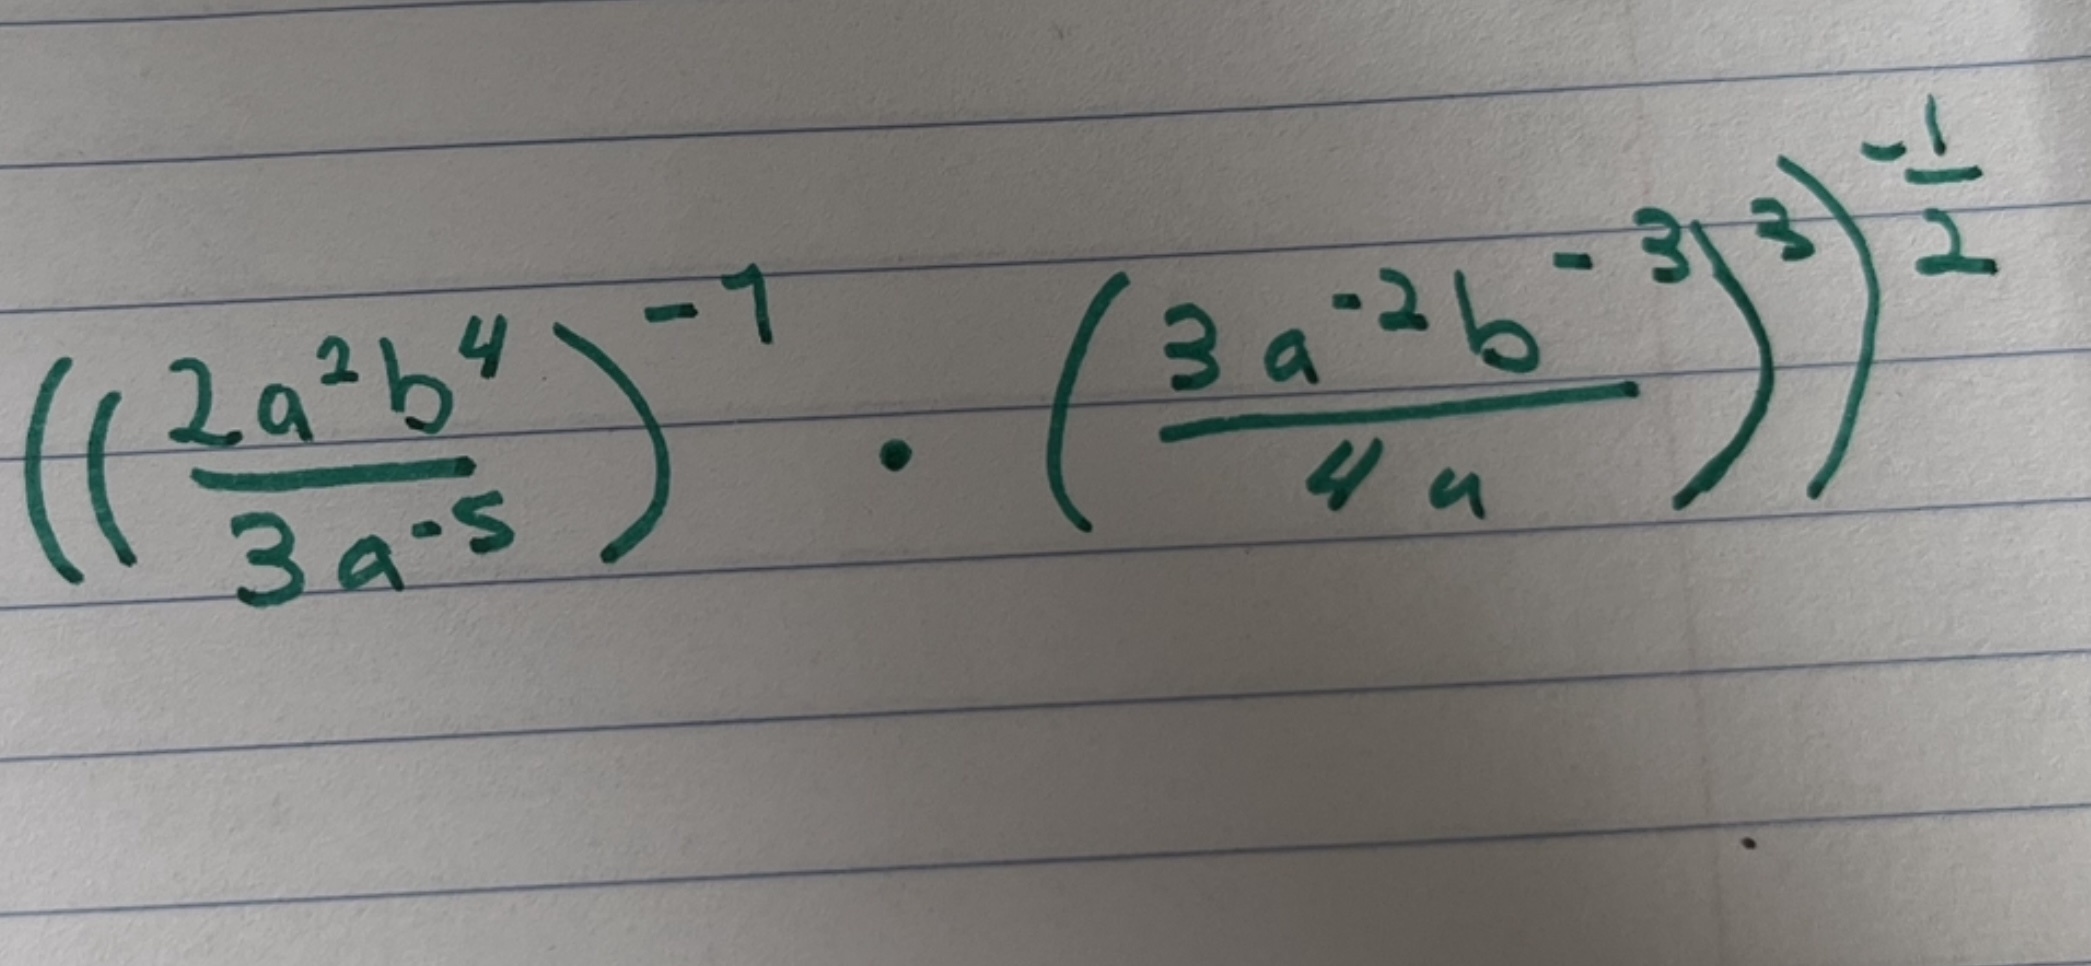 ((2a²b⁴/3a⁻⁵)⁻¹ · (3a⁻²b⁻³/4a)³)^(-1/2)